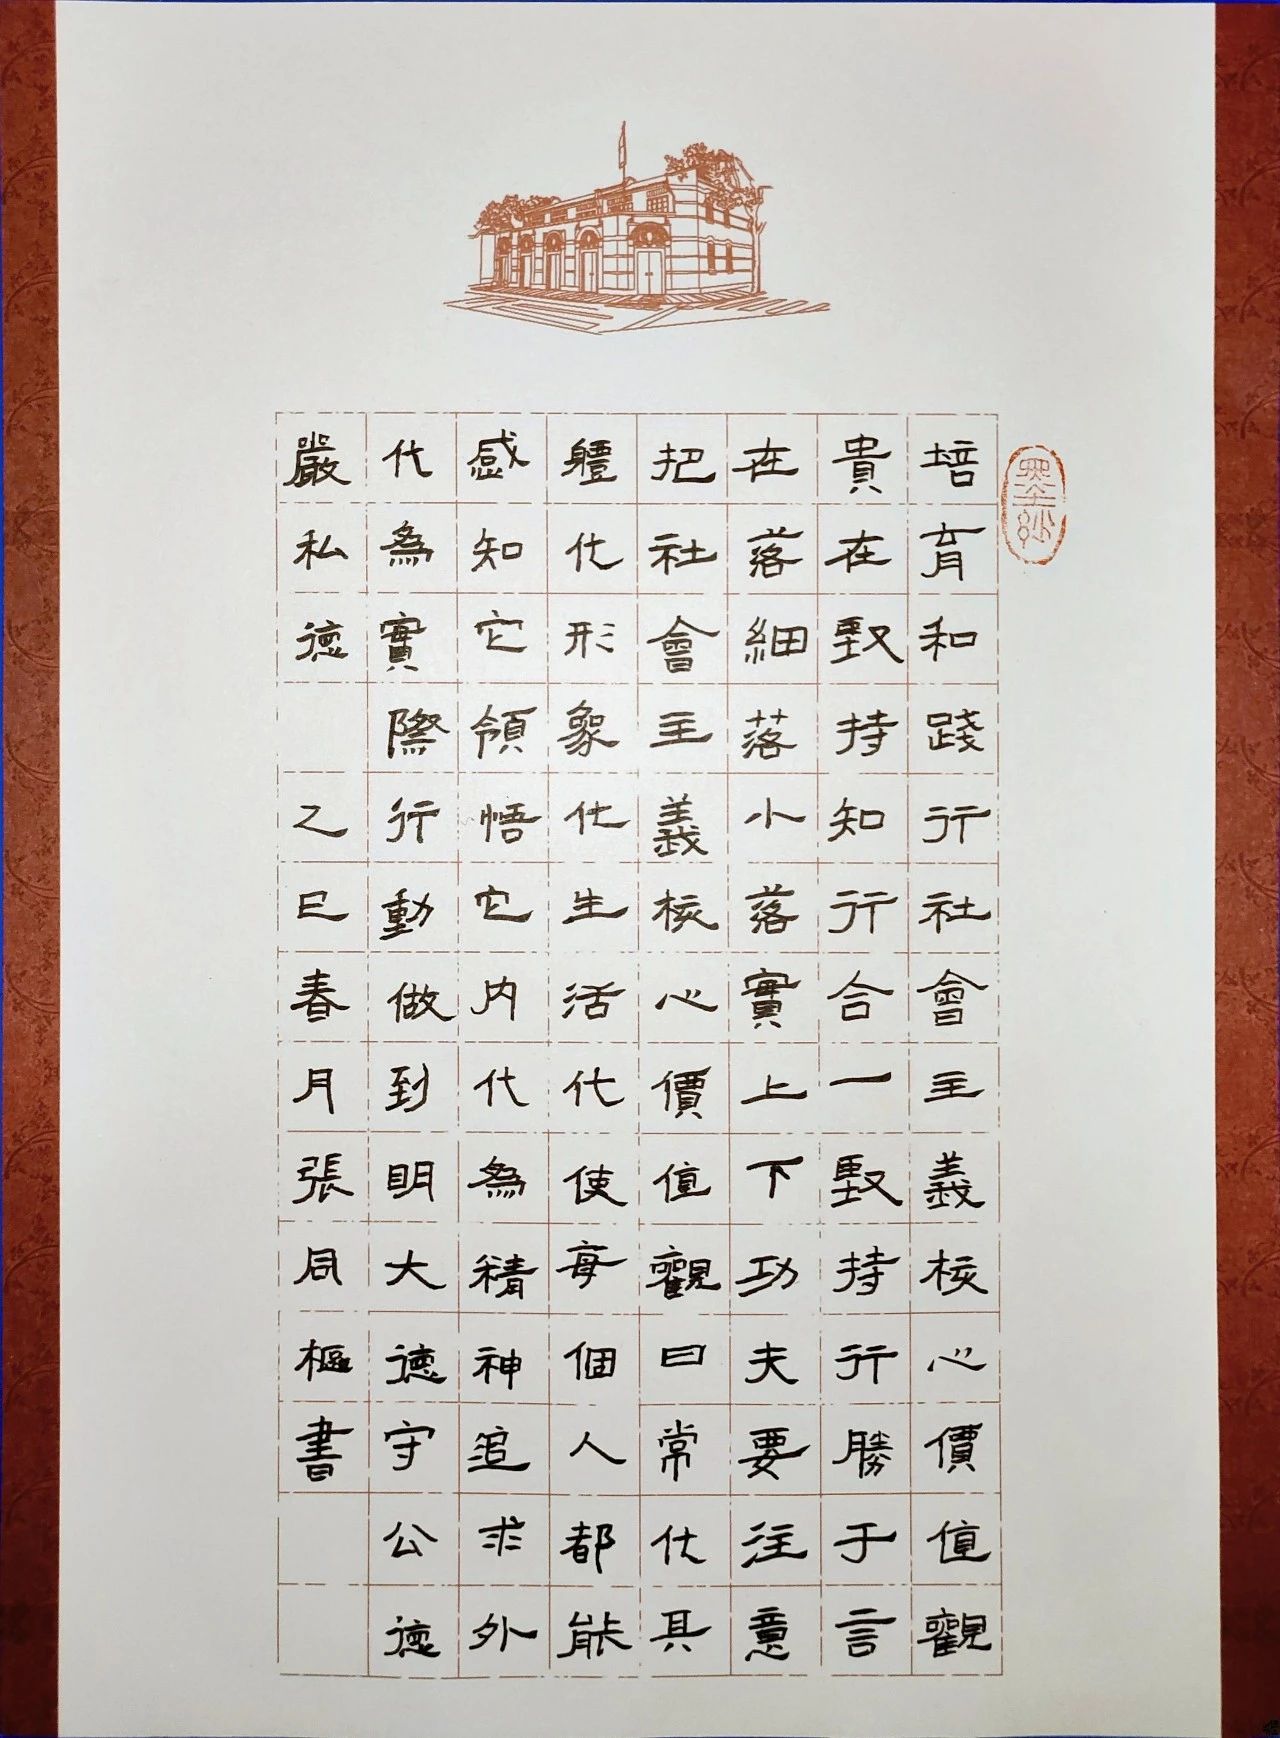 培育和踐行社會主義核心價值觀
貴在堅持知行合一堅持行勝于言
在落細落小落實上下功夫要注意
把社會主義核心價值觀日常化具
軆化形象化生活化使每個人都能
感知它領悟它内化為精神追求外
化為實際行動做到明大德守公德
嚴私德 乙巳春月張同樞書